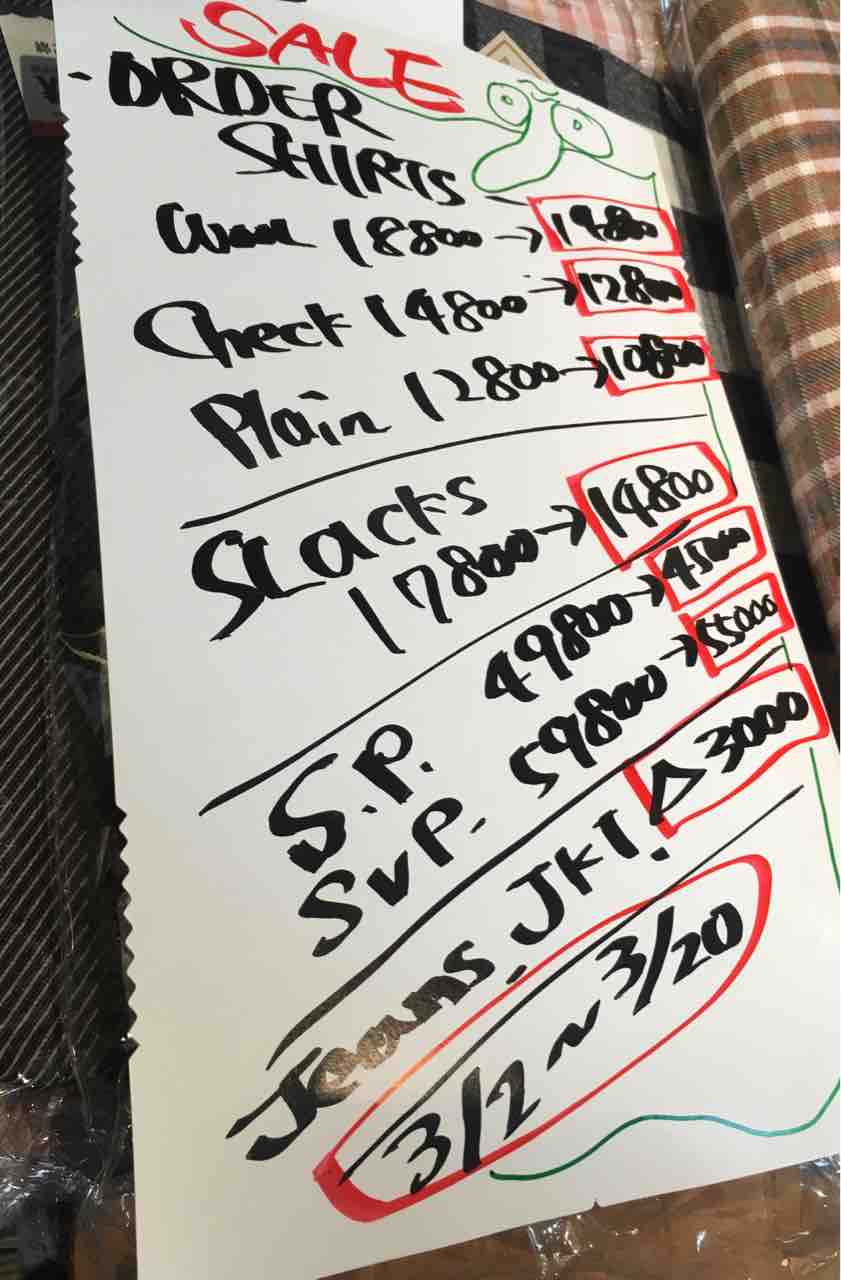 SALE
・ORDER
SHIRTS
18800→14800
Check 14800→12800
Plain 12800→10800
SLacks
17800→14800
S.P. 49800→45000
SVP. 59800→55000
Jeans. JKT. △3000
3/2~3/20